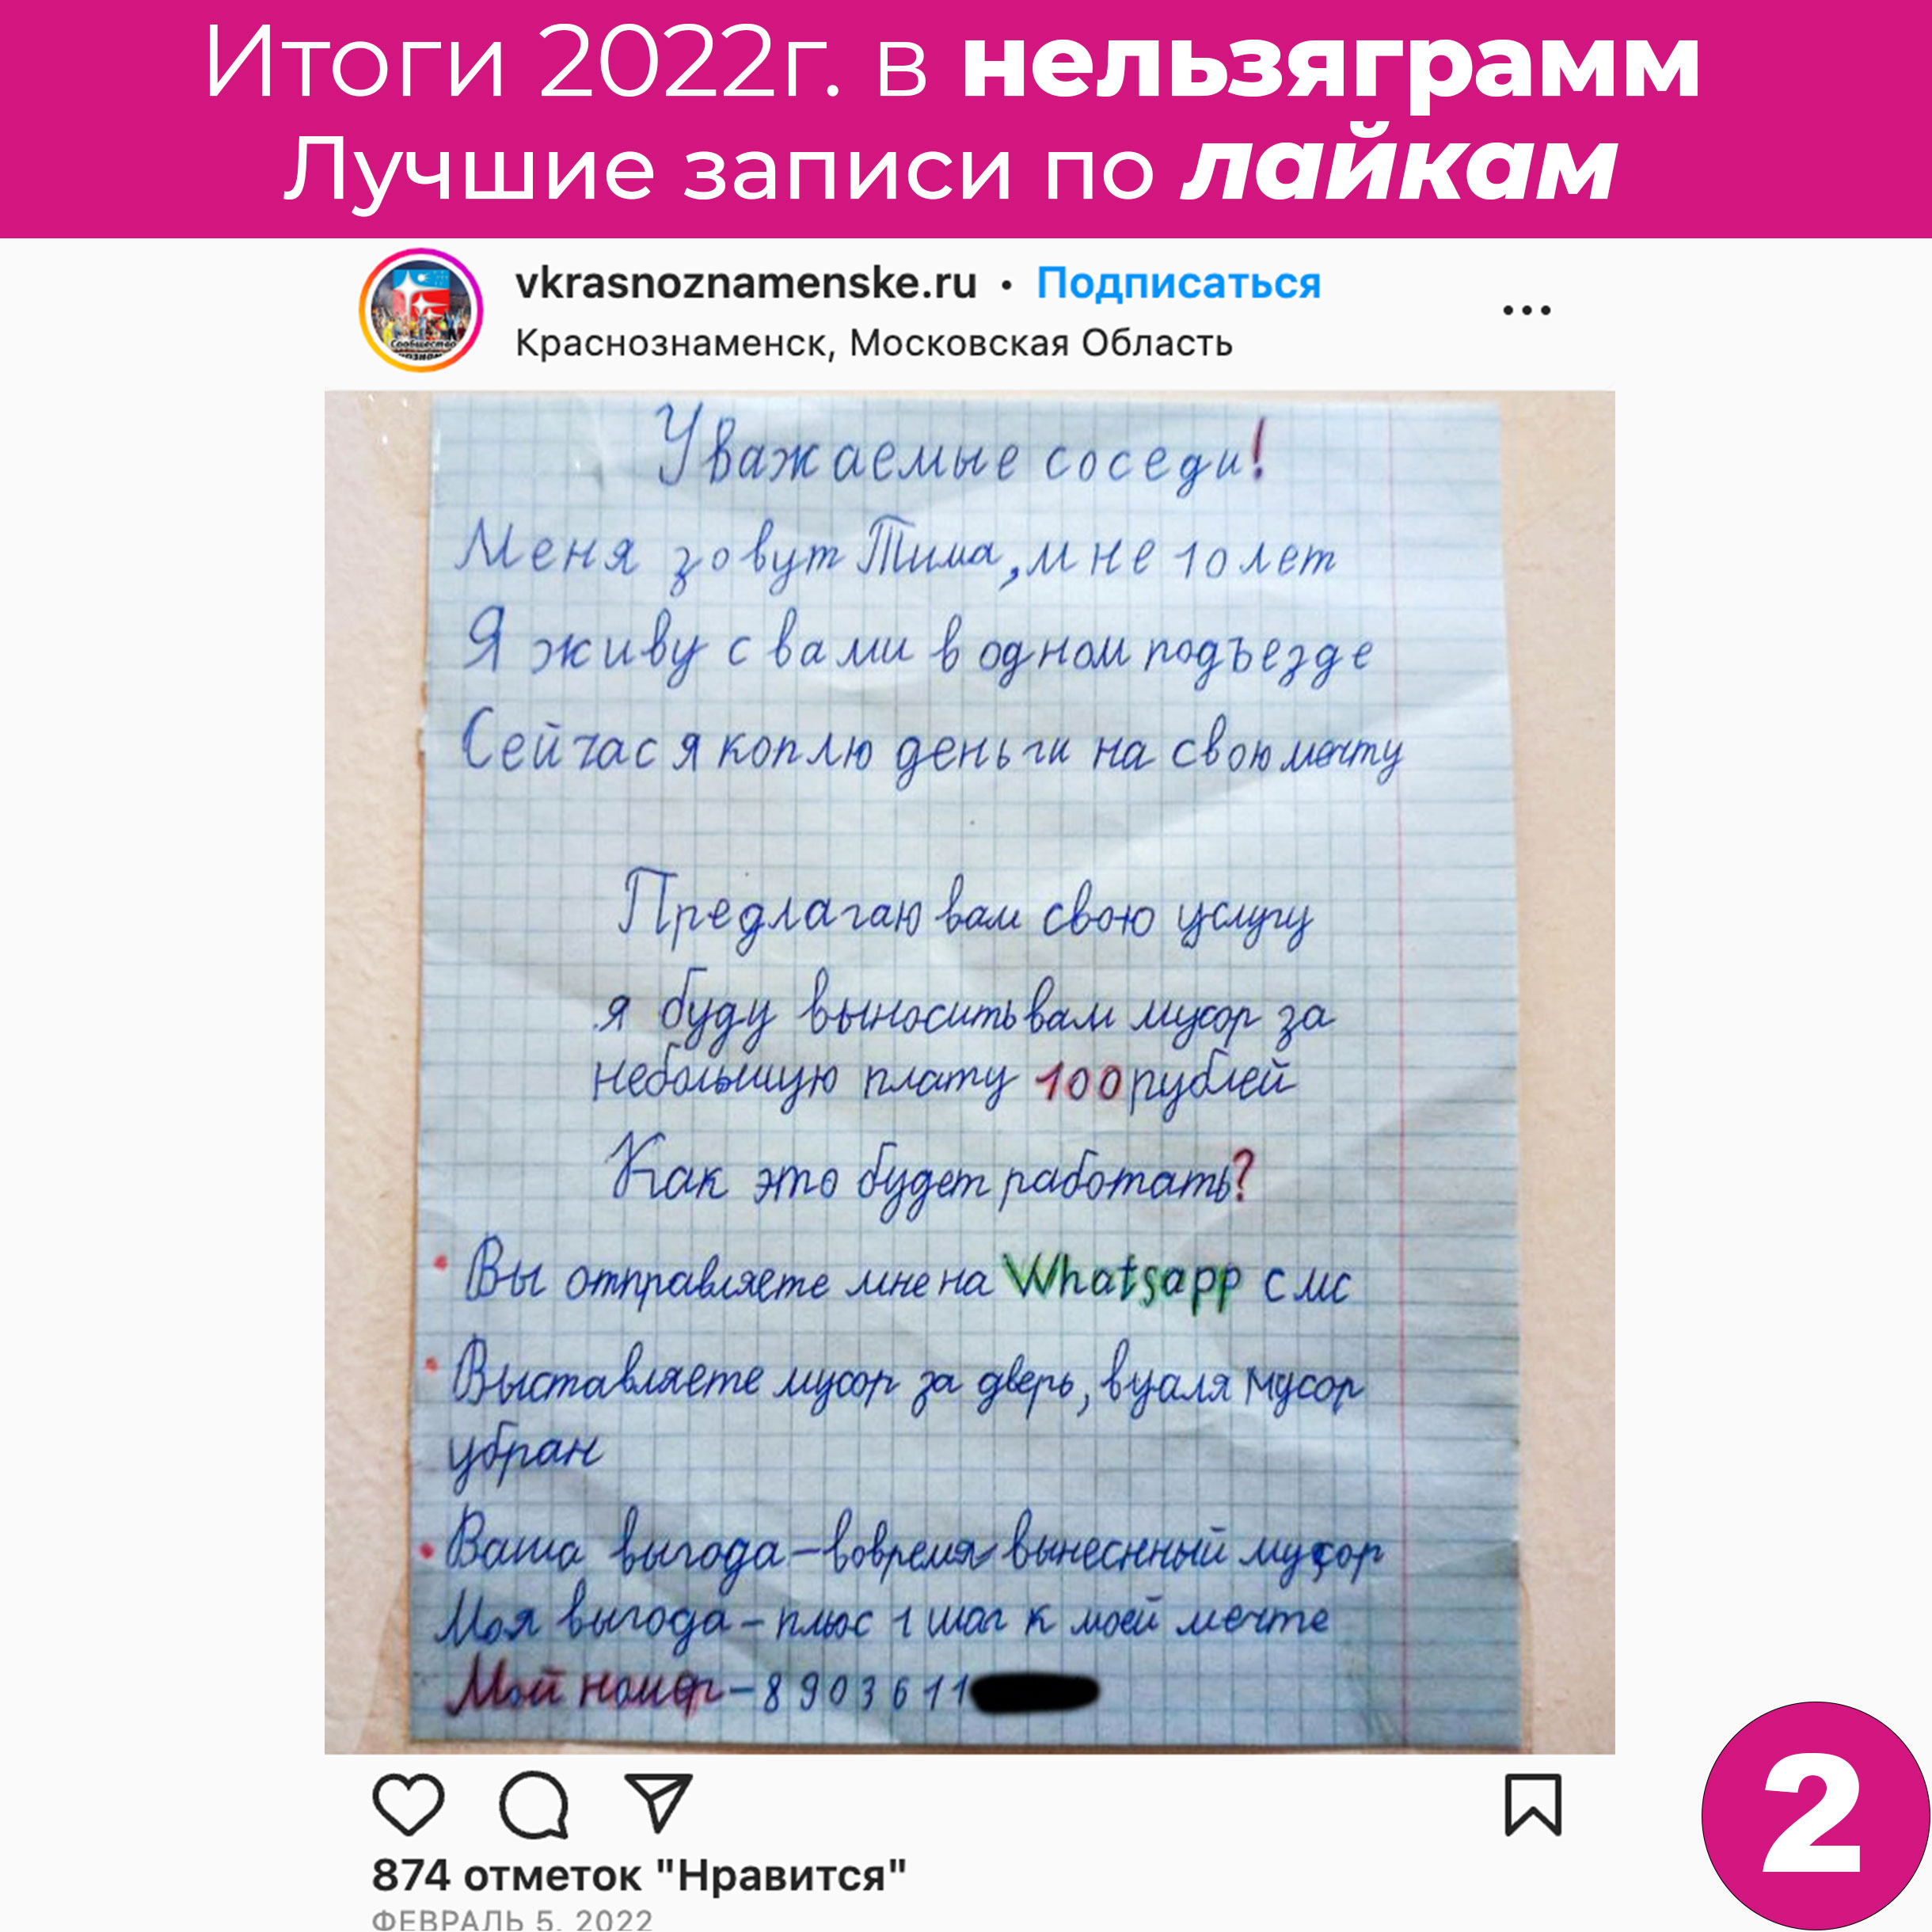 Итоги 2022г. в нельзяграмм
Лучшие записи по лайкам
vkrasnoznamenske.ru • Подписаться
Краснознаменск, Московская Область
Сообщество
Уважаемые соседи!
Меня зовут Тима, мне 10 лет
Я живу с вами в одном подъезде
Сейчас я коплю деньги на свою мечту
Предлагаю вам свою услугу
я буду выносить вам мусор за
небольшую плату 100 рублей
Как это будет работать?
• Вы отправляете мне на Whatsapp смс
• Выставляете мусор за дверь, вуаля мусор
убран
• Ваша выгода – вовремя вынеснный мусор
Моя выгода – плюс 1 шаг к моей мечте
Мой номер – 8903611
874 отметок "Нравится"
ФЕВРАЛЬ 5, 2022
2